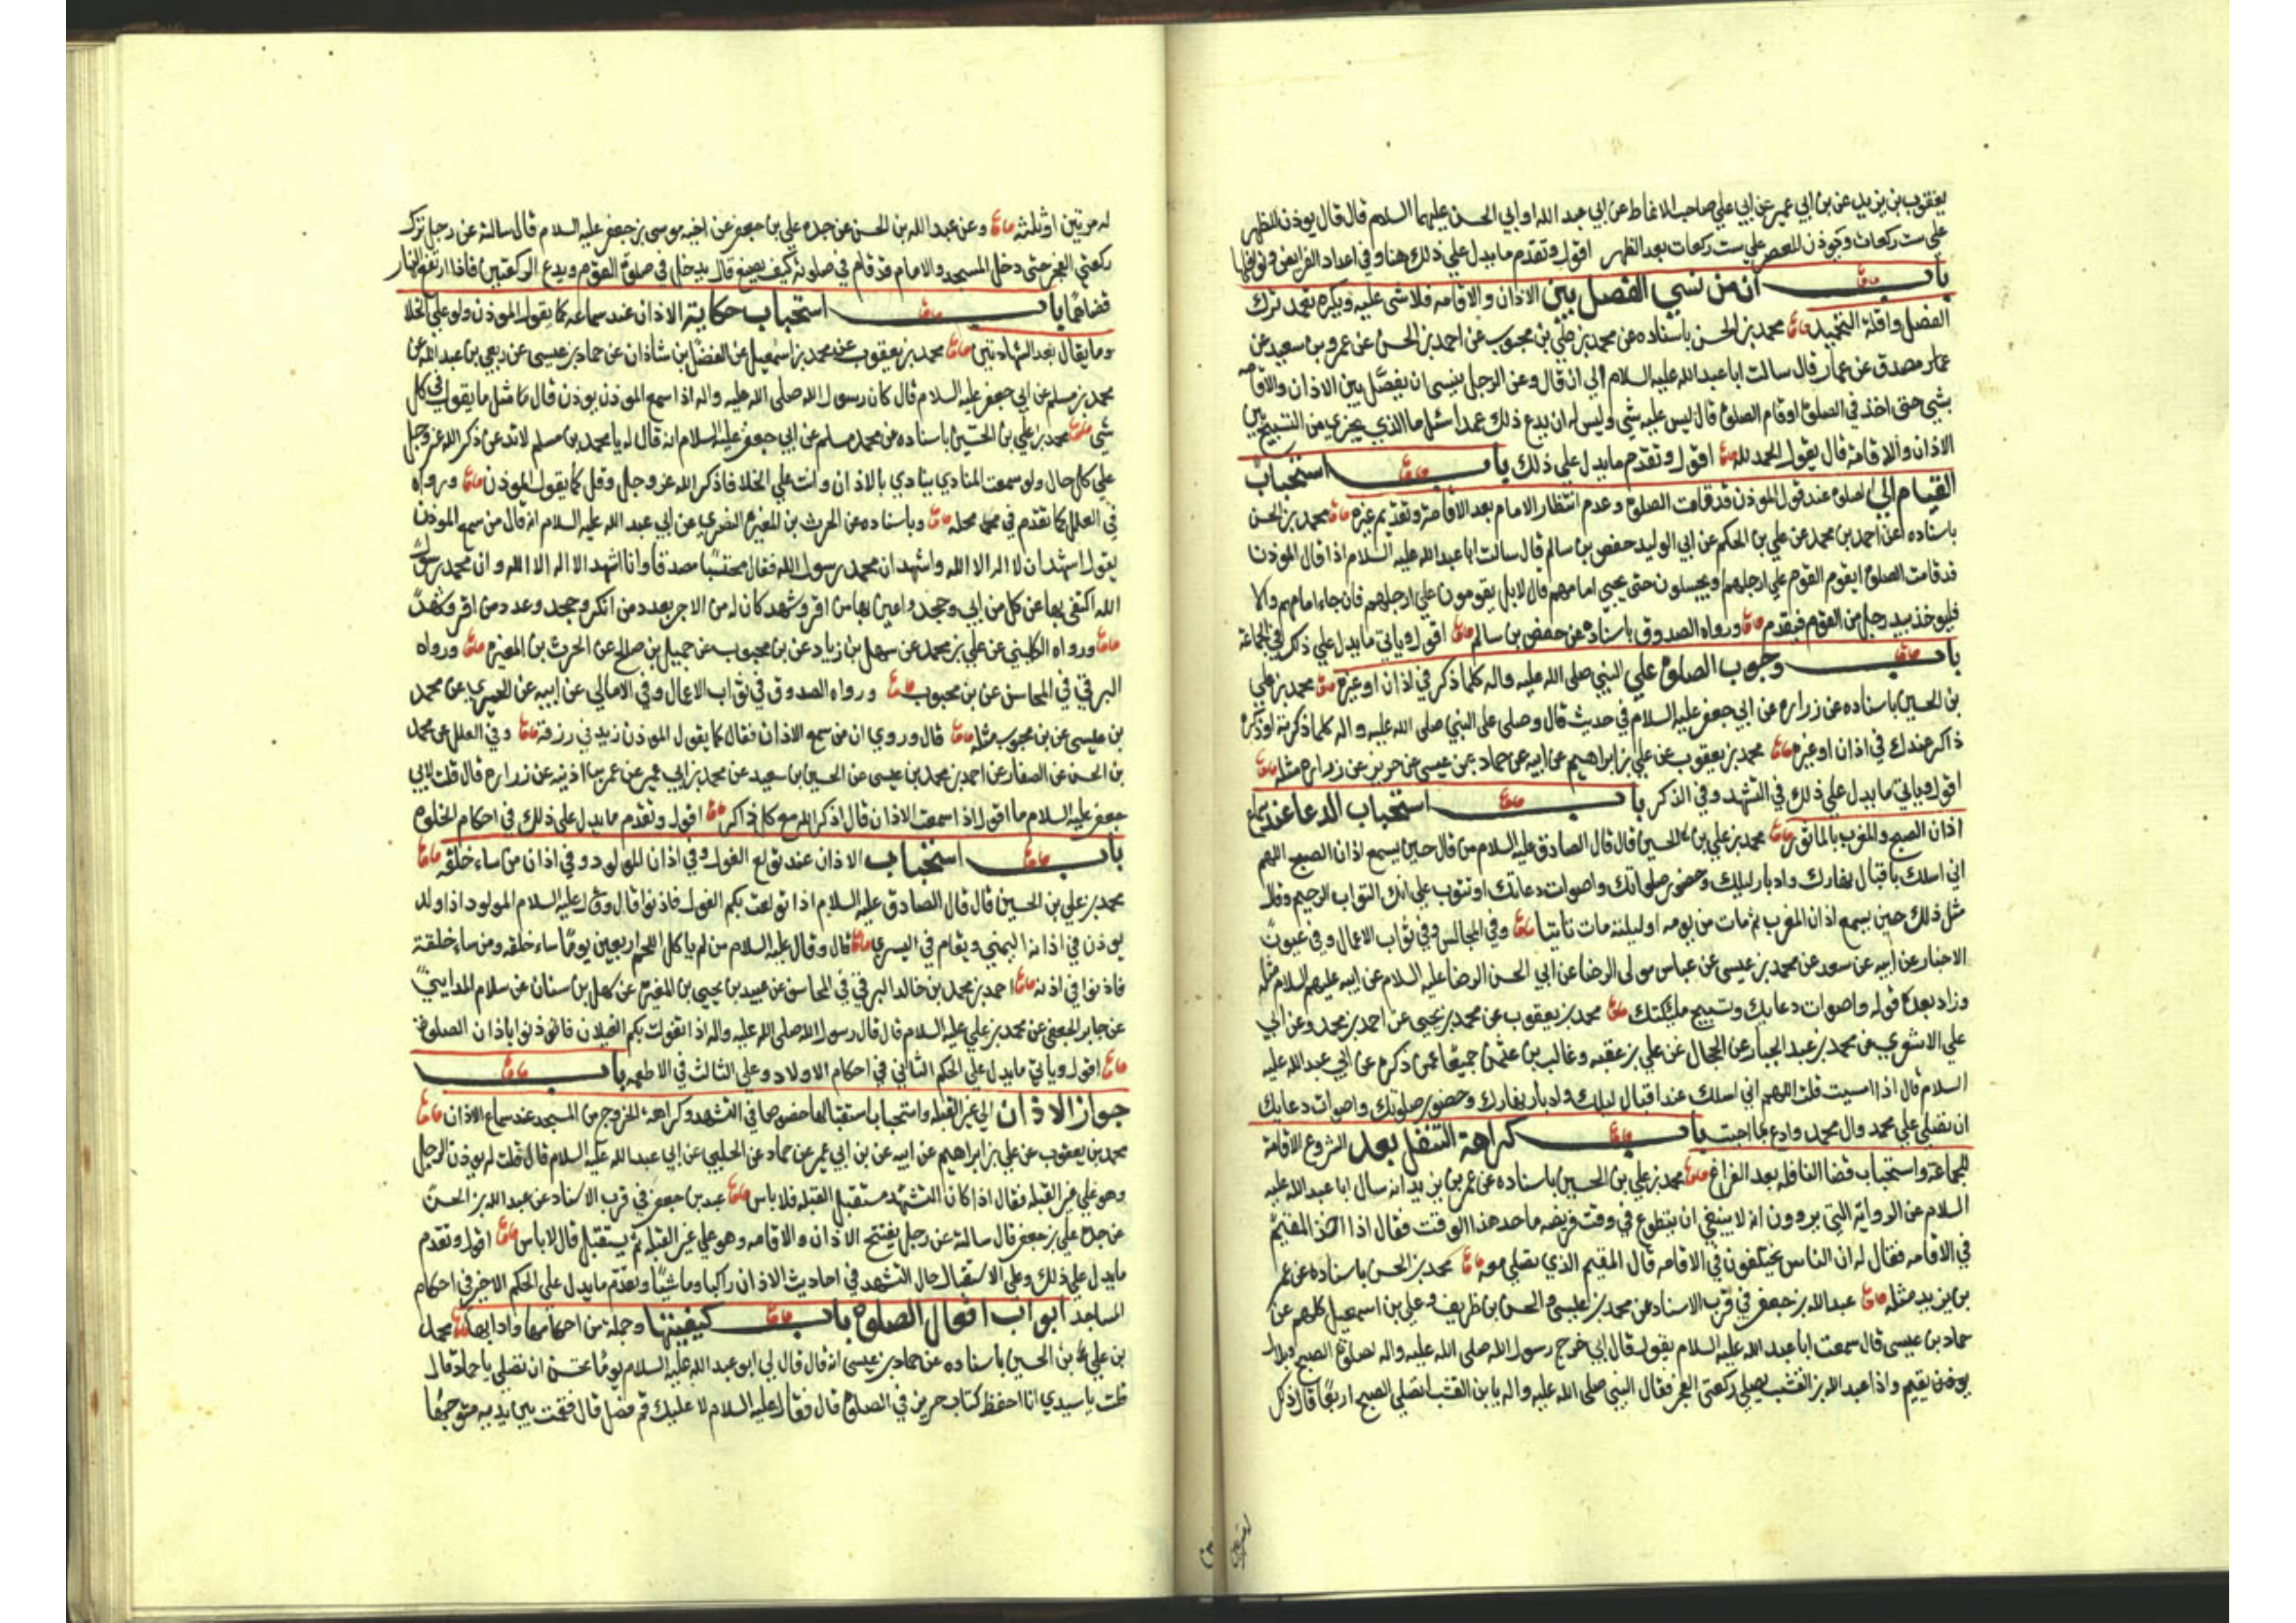 يعقوب بن يزيد عن بن ابي عمير عن ابي علي صاحب الانماط عن ابي عبد الله او ابي الحسن عليهما السلام قال قال يوذن للظهر
علي ست ركعات ويوذن للعصر علي ست ركعات بعد الظهر اقول وتقدم ما يدل علي ذلك هنا وفي اعداد الفرايض ونوافلها
باب ان من نسي الفصل بين الاذان والاقامه فلا شي عليه ويكره تعمد ترك
الفصل واقله التحميد محمد بن الحسن باسناده عن محمد بن علي بن محبوب عن احمد بن الحسن عن عمرو بن سعيد عن
مصدق عن عمار قال سالت ابا عبد الله عليه السلام الي ان قال وعن الرجل ينسي ان يفصل بين الاذان والاقامه
بشي حتى اخذ في الصلوة او قام الصلوة قال ليس عليه شي وليس له ان يدع ذلك عمدا سئل ما الذي يجزي من التسبيح بين
الاذان والاقامة قال يقول الحمد لله اقول وتقدم ما يدل علي ذلك باب استحباب
القيام الي الصلوة عند قول الموذن قد قامت الصلوة وعدم انتظار الامام بعد الاقامة وتقديم غيره محمد بن الحسن
باسناده عن احمد بن محمد عن علي بن الحكم عن ابي الوليد حفص بن سالم قال سالت ابا عبد الله عليه السلام اذا قال الموذن
قد قامت الصلوة ايقوم القوم علي ارجلهم او يجلسون حتى يجيي امامهم قال لا بل يقومون علي ارجلهم فان جاء امامهم والا
فليوخذ بيد رجل من القوم فيقدم ورواه الصدوق باسناده عن حفص بن سالم اقول وياتي ما يدل علي ذلك في الجماعة
باب وجوب الصلوة علي النبي صلى الله عليه واله كلما ذكر في اذان او غيره محمد بن علي
بن الحسين باسناده عن زراره عن ابي جعفر عليه السلام في حديث قال وصلى على النبي صلى الله عليه واله كلما ذكرته او ذكره
ذاكر عندك في اذان او غيره محمد بن يعقوب عن علي بن ابراهيم عن ابيه عن حماد بن عيسى عن حريز عن زراره مثله
اقول وياتي ما يدل علي ذلك في التشهد وفي الذكر باب استحباب الدعا عند سماع
اذان الصبح والمغرب بالماثور محمد بن علي بن الحسين قال قال الصادق عليه السلام من قال حين يسمع اذان الصبح اللهم
اني اسلك باقبال نهارك وادبار ليلك وحضور صلواتك واصوات دعاتك ان تتوب علي انك التواب الرحيم وقال
مثل ذلك حين يسمع اذان المغرب ثم مات من يومه او ليلته مات تايبا وفي المجالس وفي ثواب الاعمال وفي عيون
الاخبار عن ابيه عن سعد عن محمد بن عيسى عن عباس مولى الرضا عن ابي الحسن الرضا عليه السلام عن ابيه عليهم السلام مثله
وزاد بعد قوله واصوات دعايك وتسبيح مليكتك محمد بن يعقوب عن محمد بن يحيى عن احمد بن محمد وعن ابي
علي الاشعري عن محمد بن عبد الجبار عن الحجال عن علي بن عقبه وغالب بن عثمن جميعا عمن ذكره عن ابي عبد الله عليه
السلام قال اذا امسيت قلت اللهم اني اسلك عند اقبال ليلك وادبار نهارك وحضور صلوتك واصوات دعايك
ان تصلي علي محمد وال محمد وادع بما احببت باب كراهة التنفل بعد الشروع الاقامة
للجماعة واستحباب قضا النافله بعد الفراغ محمد بن علي بن الحسين باسناده عن عمر بن يزيد انه سال ابا عبد الله عليه
السلام عن الرواية التي يروون انه لا ينبغي ان يتطوع في وقت فريضه ما حد هذا الوقت فقال اذا اخذ المقيم
في الاقامه فقال له ان الناس يختلفون في الاقامه قال المقيم الذي تصلي معه محمد بن الحسن باسناده عن عمر
بن يزيد مثله عبد الله بن جعفر في قرب الاسناد عن محمد بن عيسى والحسن بن ظريف وعلي بن اسمعيل كلهم عن
حماد بن عيسى قال سمعت ابا عبد الله عليه السلام يقول قال ابي خرج رسول الله صلى الله عليه واله لصلوة الصبح وبلال
يقيم واذا عبد الله بن القشب يصلي ركعتي الفجر فقال النبي صلى الله عليه واله يا بن القشب اتصلي الصبح اربعا قال ذلك
له مرتين او ثلثه وعن عبد الله بن الحسن عن جده علي بن جعفر عن اخيه موسى بن جعفر عليه السلام قال سالته عن رجل ترك
ركعتي الفجر حتى دخل المسجد والامام قد قام في صلوته كيف يصنع قال يدخل في صلوة القوم ويدع الركعتين فاذا ارتفع النهار
قضاهما باب استحباب حكاية الاذان عند سماعه كما يقول الموذن ولو على الخلا
وما يقال بعد الشهادتين محمد بن يعقوب عن محمد بن اسمعيل عن الفضل بن شاذان عن حماد بن عيسى عن ربعي بن عبد الله عن
محمد بن مسلم عن ابي جعفر عليه السلام قال كان رسول الله صلى الله عليه واله اذا سمع الموذن يوذن قال مثل ما يقول في كل
شي محمد بن علي بن الحسين باسناده عن محمد بن مسلم عن ابي جعفر عليه السلام انه قال له يا محمد بن مسلم لا تدعن ذكر الله عز وجل
علي كل حال ولو سمعت المنادي ينادي بالاذان وانت علي الخلا فاذكر الله عز وجل وقل كما يقول الموذن ورواه
في العلل كما تقدم في محله وباسناده عن الحرث بن المغيرة النضري عن ابي عبد الله عليه السلام انه قال من سمع الموذن
يقول اشهد ان لا اله الا الله واشهد ان محمد رسول الله فقال محتسبا مصدقا وانا اشهد الا اله الا الله وان محمد رسول
الله اكتفى بها عن كل من ابي وجحد واعين بها من اقر وشهد كان له من الاجر بعدد من انكر وجحد وعدد من اقر وشهد
ورواه الكليني عن علي بن محمد عن سهل بن زياد عن بن محبوب عن جميل بن صالح عن الحرث بن المغيره ورواه
البرقي في المحاسن عن بن محبوب ورواه الصدوق في ثواب الاعمال وفي الامالي عن ابيه عن الحميري عن محمد
بن عيسى عن بن محبوب مثله قال وروي ان من سمع الاذان فقال كما يقول الموذن زيد في رزقه وفي العلل عن محمد
بن الحسن عن الصفار عن احمد بن محمد بن عيسى عن الحسين بن سعيد عن محمد بن ابي عمير عن عمر بن اذينه عن زراره قال قلت لابي
جعفر عليه السلام ما اقول اذا سمعت الاذان قال اذكر الله مع كل ذاكر اقول وتقدم ما يدل على ذلك في احكام الخلوة
باب استحباب الاذان عند تولع الغول وفي اذان المولود وفي اذان من ساء خلقه
محمد بن علي بن الحسين قال قال الصادق عليه السلام اذا تولعت بكم الغول فاذنوا قال وقال عليه السلام المولود اذا ولد
يوذن في اذنه اليمني ويقام في اليسري قال وقال عليه السلام من لم ياكل اللحم اربعين يوما ساء خلقه ومن ساء خلقة
فاذنوا في اذنه احمد بن محمد بن خالد البرقي في المحاسن عن عبيد بن يحيى بن المغيره عن سهل بن سنان عن سلام المدايني
عن جابر الجعفي عن محمد بن علي عليه السلام قال قال رسول الله صلى الله عليه واله اذا تغولت بكم الغيلان فاذنوا باذان الصلوة
اقول وياتي ما يدل على الحكم الثاني في احكام الاولاد وعلى الثالث في الاطعمه باب
جواز الاذان الي غير القبله واستحباب استقبالها خصوصا في التشهد وكراهة الخروج من المسجد عند سماع الاذان
محمد بن يعقوب عن علي بن ابراهيم عن ابيه عن بن ابي عمير عن حماد عن الحلبي عن ابي عبد الله عليه السلام قال قلت له يوذن الرجل
وهو علي غير القبله فقال اذا كان التشهد مستقبل القبله فلا باس عبد بن جعفر في قرب الاسناد عن عبد الله بن الحسن
عن جده علي بن جعفر قال سالته عن رجل يفتتح الاذان والاقامه وهو علي غير القبله ثم يستقبل قال لا باس اقول وتقدم
ما يدل علي ذلك وعلى الاستقبال حال التشهد في احاديث الاذان راكبا وماشيا وتقدم ما يدل على الحكم الاخير في احكام
المساجد ابواب افعال الصلوة باب كيفيتها وجمله من احكامها وادابها محمد
بن علي بن الحسين باسناده عن حماد بن عيسى انه قال قال لي ابو عبد الله عليه السلام يوما تحسن ان تصلي يا حماد قال
قلت يا سيدي انا احفظ كتاب حريز في الصلوة قال فقال عليه السلام لا عليك قم فصل قال فقمت بين يديه متوجها